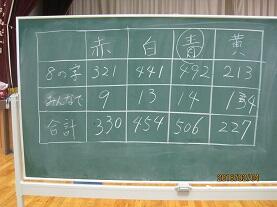 赤 白 青 黄
8の字 321 441 492 213
みんなで 9 13 14 14
合計 330 454 506 227
2013/02/04